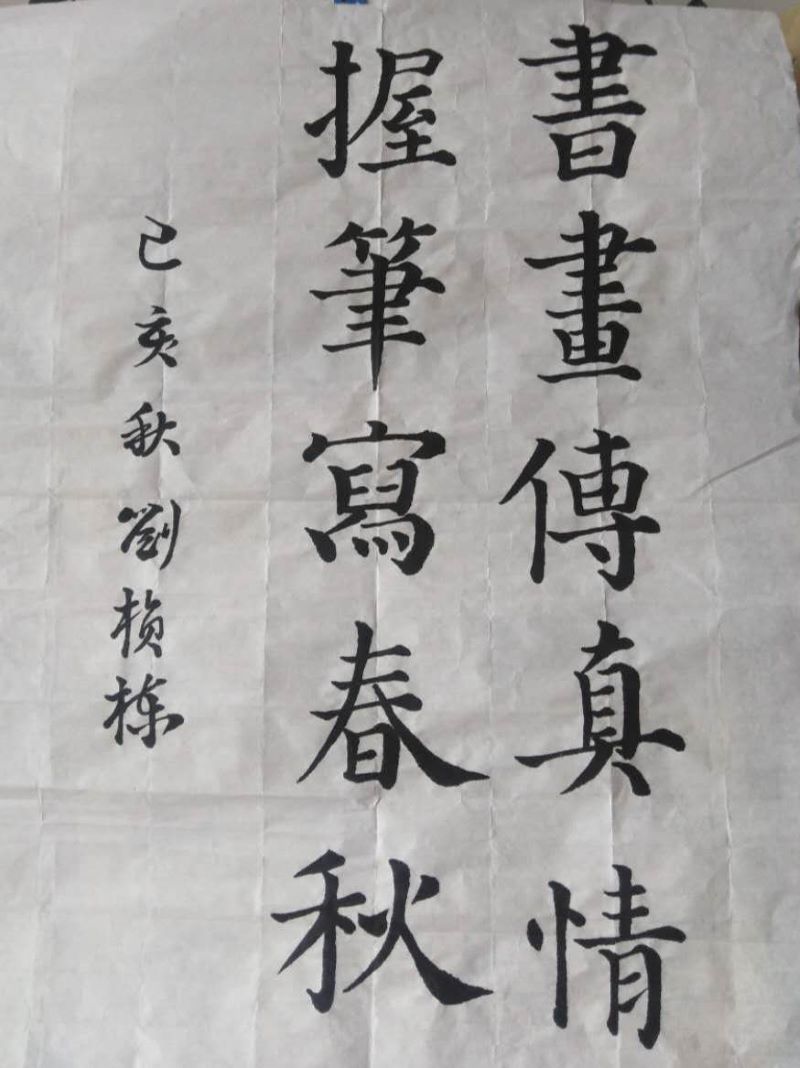 書畫傳真情
握筆寫春秋
己亥秋劉楨栋